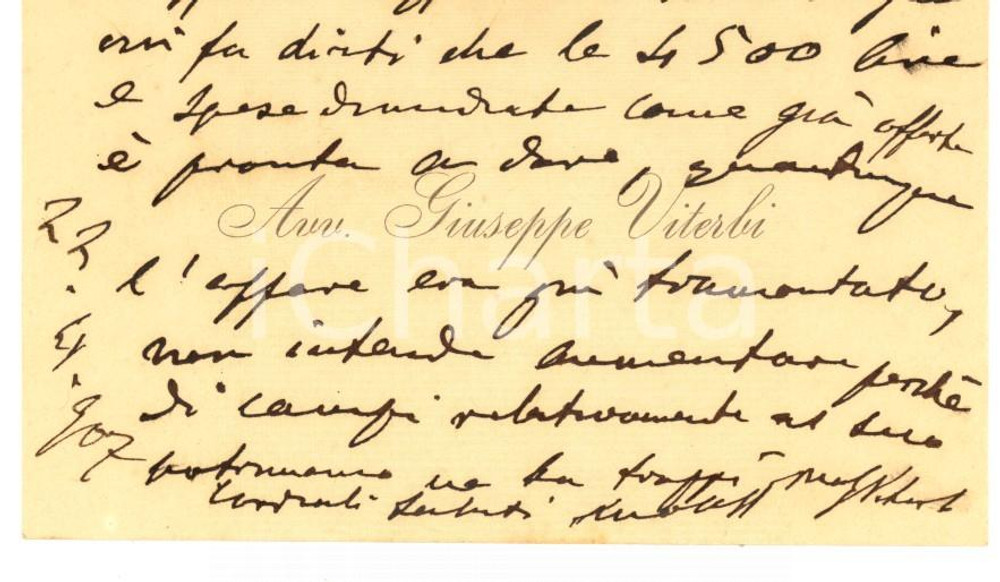 mi fa dirti che le 4500 lire
e spese domandate come già offerte
è pronta a dare, quantunque
Avv. Giuseppe Viterbi
l'affare era già tramontato,
non intende aumentare perchè
di campi relativamente al suo
patrimonio ne ha troppi
Cordiali saluti
22.4.907
iCharta